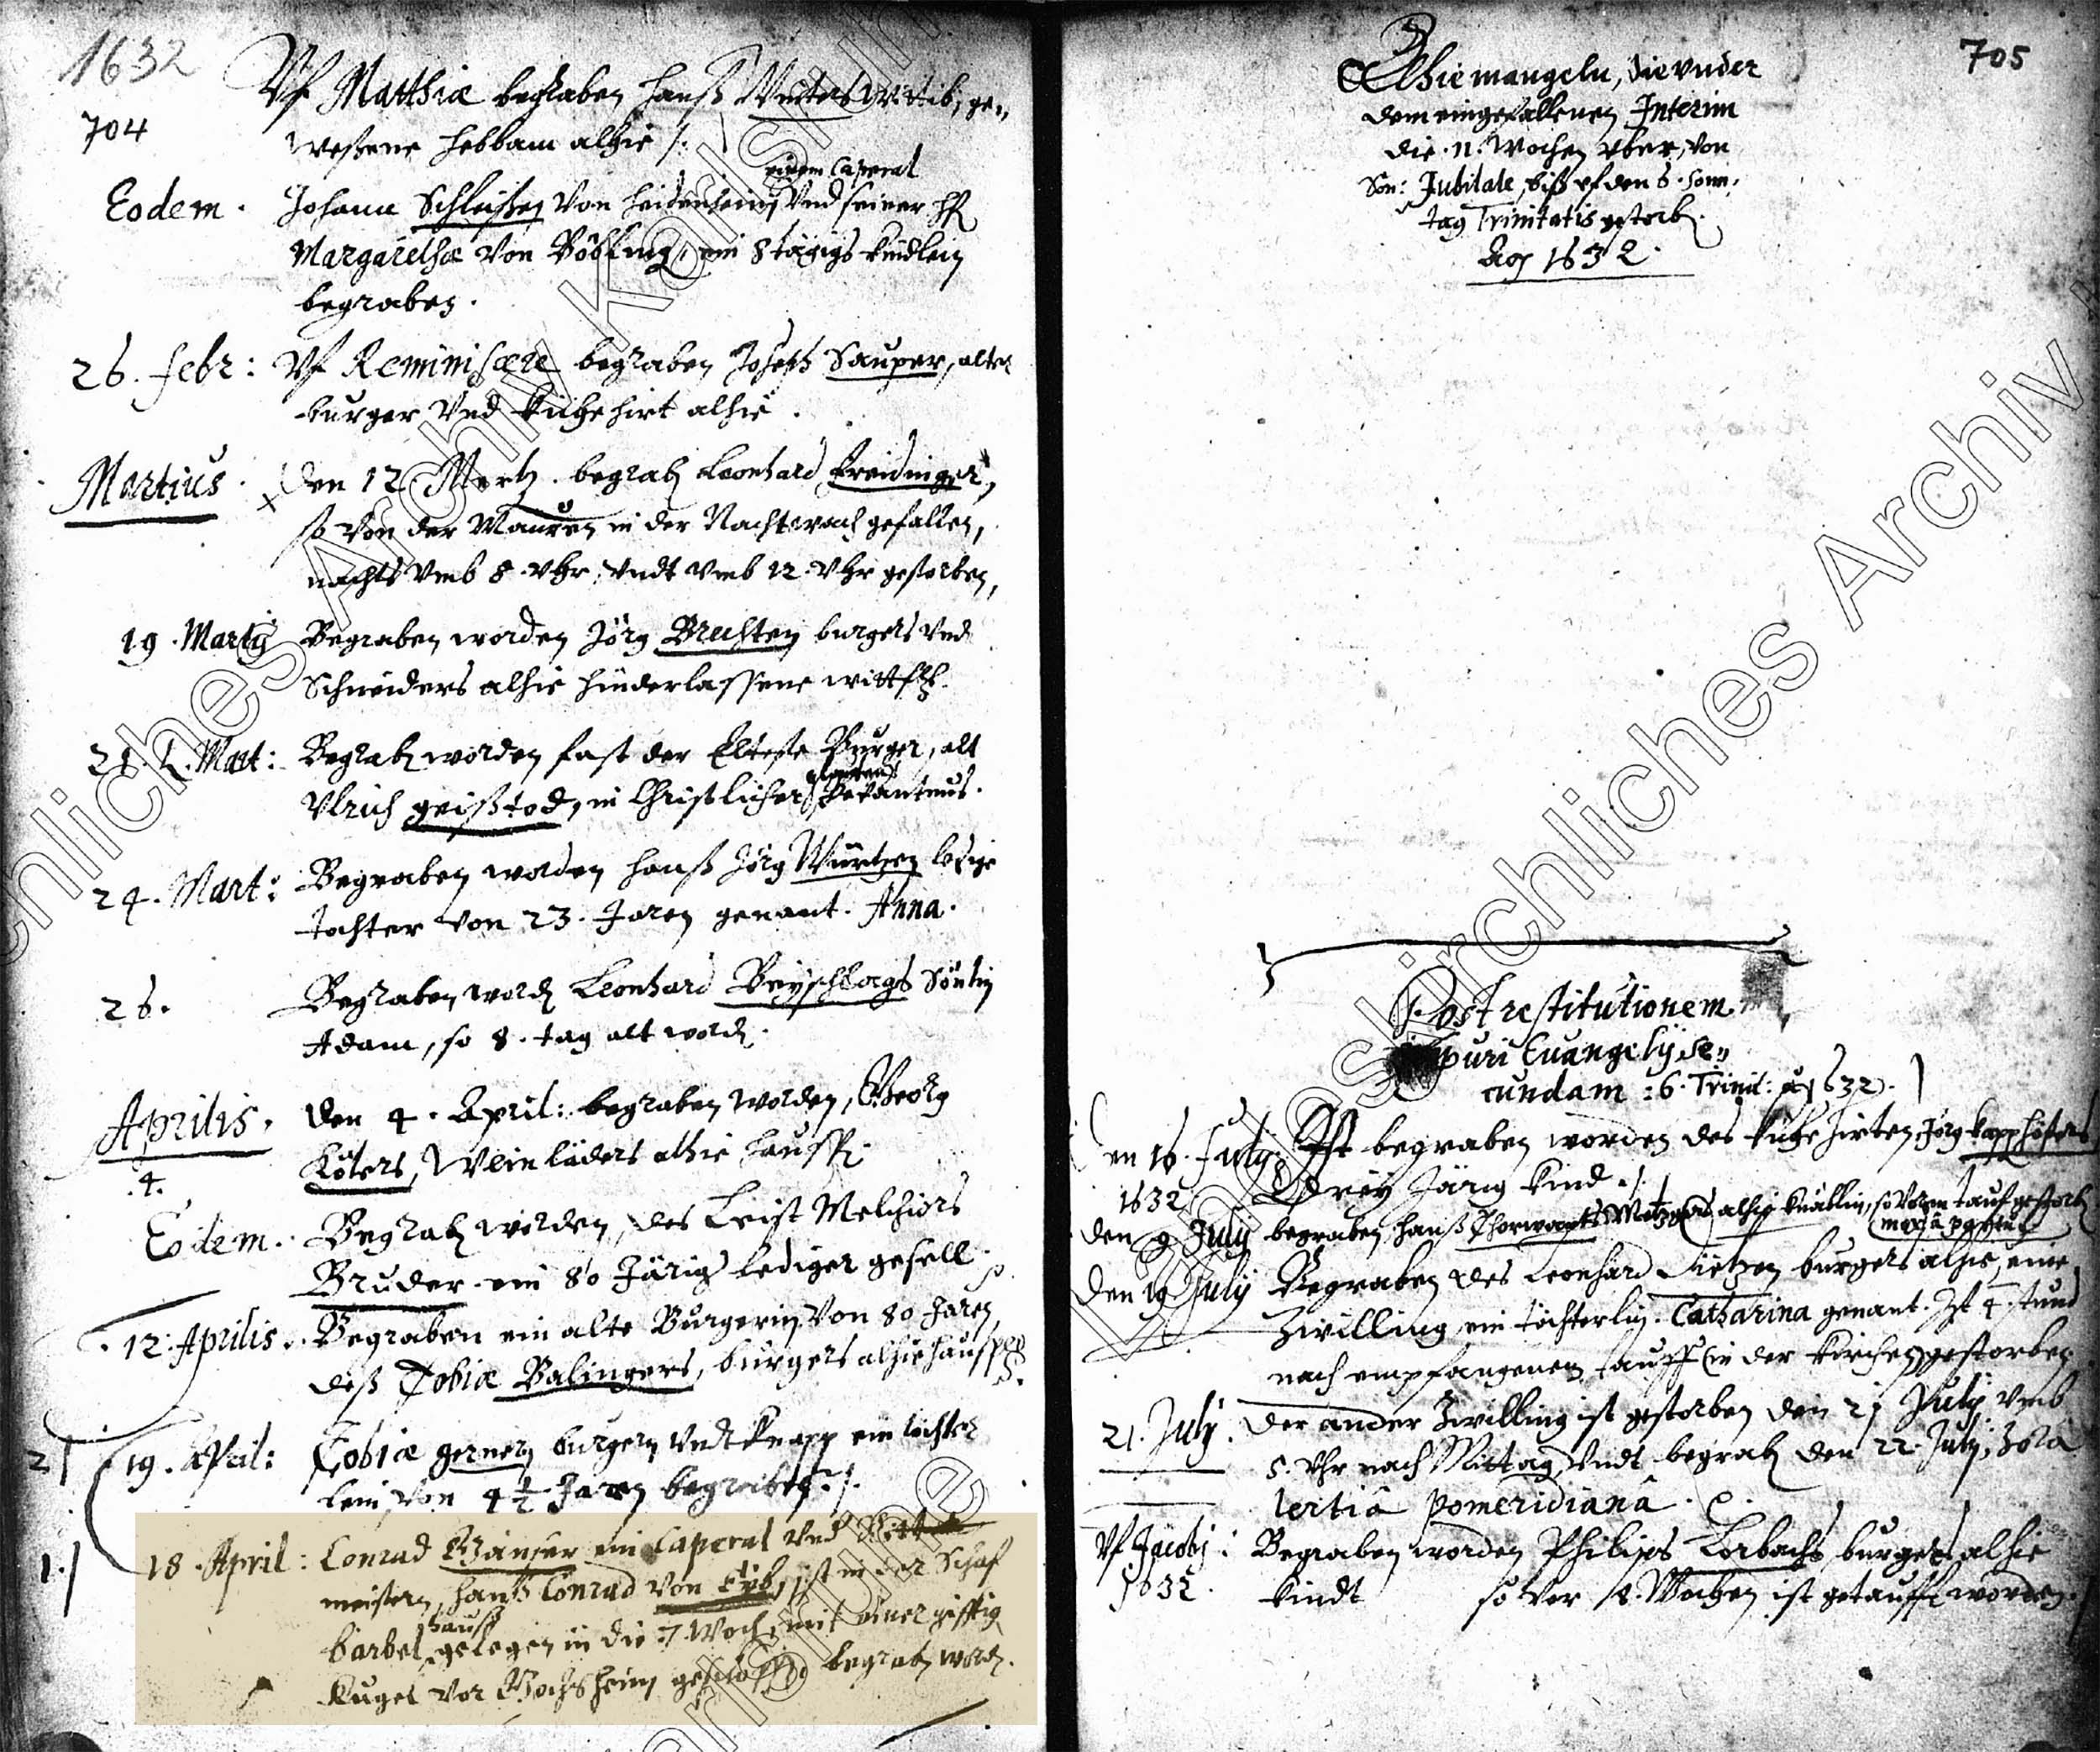 1632
704
Vf Matthiæ begraben Hanß
weßene Hebbam alhie /.
einem Caperal
Eodem. Johann Schleißen von Heidenheim Vnd seiner
Margarethæ von Böbling, ein 8 tägigs kindlein
begraben.
26. Febr: Vf Reminiscere begraben Joseph Sauper, alter
burger Vnd kühehirt alhie.
Martius. Den 12 Mertz. begrab Leonhard Freidinger,
so von der Mauren in der Nachtwach gefallen,
nachts vmb 8. Vhr, Vndt vmb 12. Vhr gestorben,
19. Martij Begraben worden Jörg burgers Vnd
Schneiders alhie hinderlassene
21. Mart: Begrab worden fast der Elteste Burger, alt
Vlrich geißtod, in Christlicher bekantnus.
24. Mart: Begraben worden Hanß Jörg Würtzen ledige
tochter von 23. Jaren genant. Anna.
26. Begraben word Leonhard Beyschlags Sönlin
Adam, so 8. tag alt word.
Aprilis. Den 4. April: begraben worden, Georg
4. Köters, Weinläders alhie
Eodem. Begrab worden, des Leist Melchiors
Bruder ein 80 Järig lediger gesell
12. Aprilis. Begraben ein alte Burgerin von 80 Jaren,
deß Tobiæ Balingers, burgers alhie
2 19. April: Tobiæ gernern burgern Vndt ein töchter
lein von 4 1/2 Jaren begraben. /.
1. 18. April: Conrad Ganser ein Caperal Vnd
meistern, Hanß Conrad von Eyb, ist in der Schaf
hauß
barbel gelegen in die 7 Woch, mit einer gifftig
Kugel vor Gochsheim geschossen, begrab word.
705
Alhie mangeln, die vnder
dem eingefallenen Interim
die 11. Wochen vber, von
Son: Jubilate, biß vf den 6. Son,
tag Trinitatis gestorb.
Ao 1632.
Post restitutionem
puri Euangelij se,,
cundam : 6. Trinit: 1632.
Den 16. July. Ist begraben worden des kühehirten Jörg Kapphöfers
1632 Drey Järig kind ./.
Den 9 July begraben Hanß Metzgers alhie knäblin, so tauf gestorb
mox à
Den 19 July Begraben des Leonhard Dietzen burgers alhie, eine
Zwilling ein töchterlin. Catharina genant. Ist 4. stund
nach empfangenen tauff (in der kirchen) gestorben
21. July. Der ander Zwilling ist gestorben den 21 July vmb
5. Vhr nach Mittag, Vndt begrab den 22. July, hora
tertiâ pomeridianâ.
Vf Jacobj: Begraben worden Philips Lorbachs burgers alhie
1632. kindt so vor 8. Wochen ist getaufft worden.
Landeskirchliches Archiv Karlsruhe